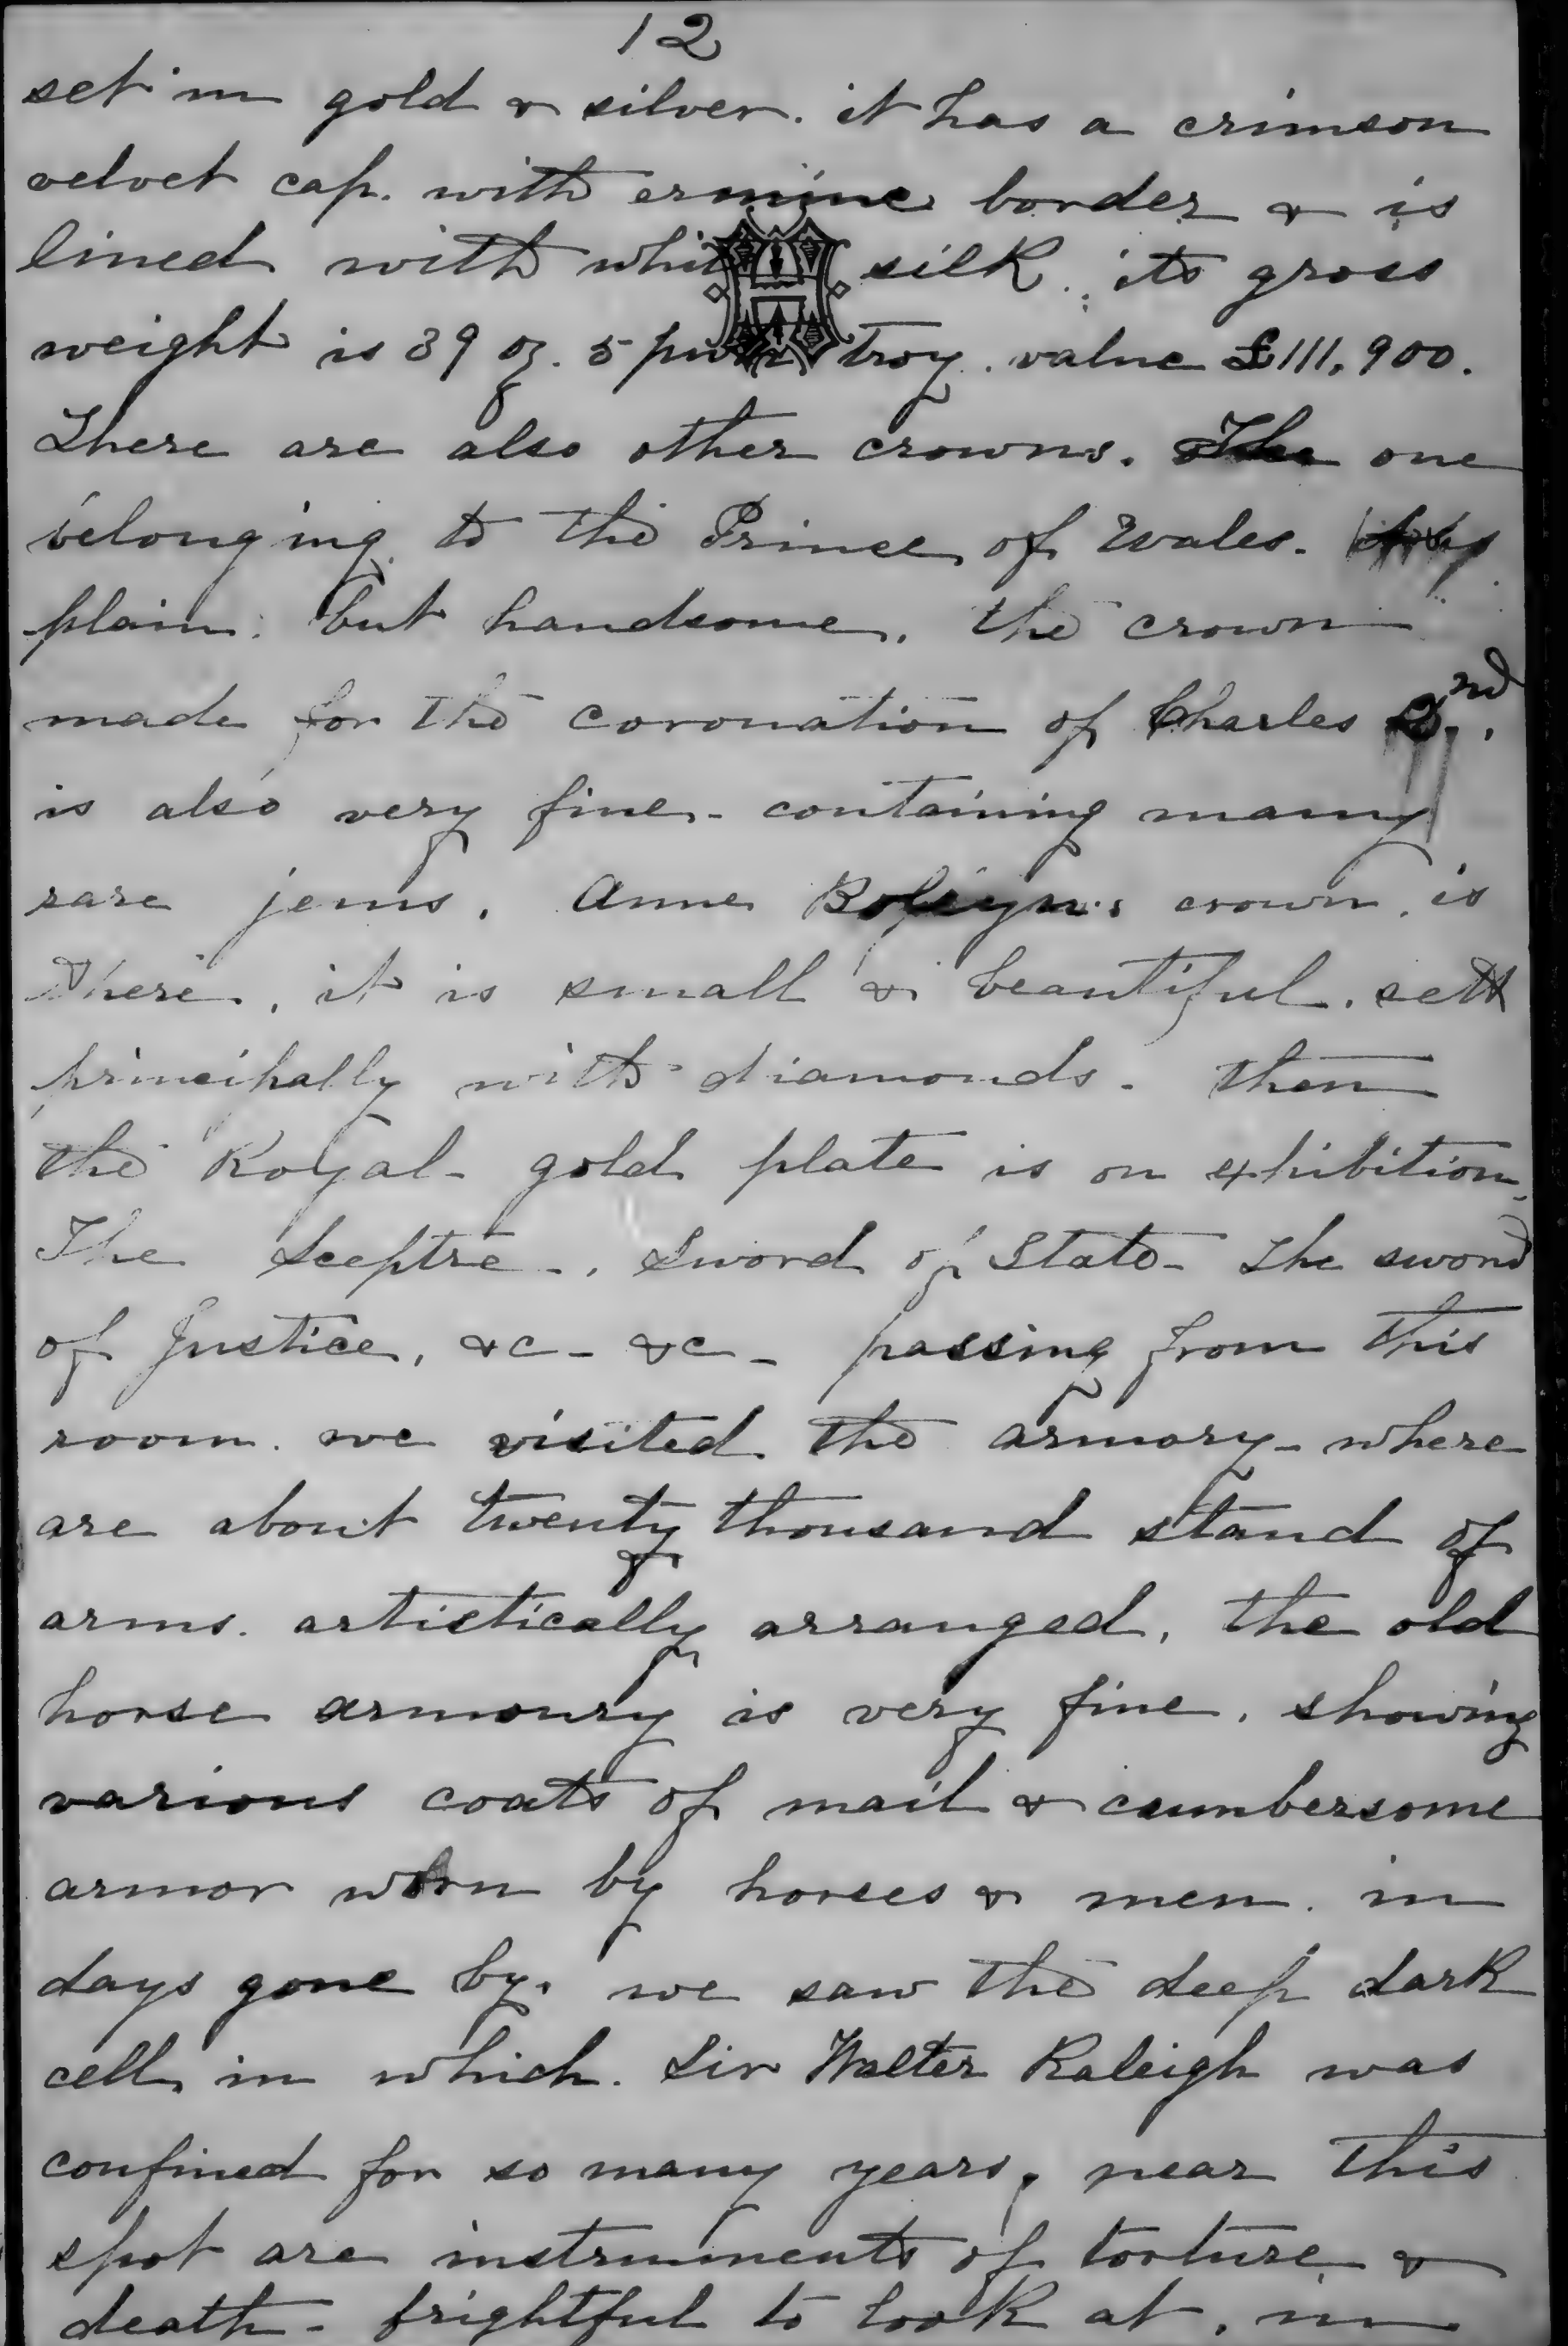 12
set in gold & silver. it has a crimson
velvet cap. with ermine border & is
lined with white silk. its gross
weight is 39 oz. 5 pwts troy. value £111,900.
There are also other crowns. The one
belonging to the Prince of Wales.
plain. but handsome. the crown
made for the coronation of Charles 2nd.
is also very fine - containing many
rare jems. Anne Boleyn's crown. is
there, it is small & beautiful. sett
principally with diamonds - then
the Royal - gold plate is on exhibition,
The Sceptre -, Sword of State - The sword
of Justice, &c - &c - passing from this
room. we visited the armory - where
are about twenty thousand stand of
arms. artistically arranged, the old
horse armoury is very fine. showing
various coats of mail & cumbersome
armor worn by horses & men. in
days gone by. we saw the deep dark
cell in which. Sir Walter Raleigh was
confined for so many years, near this
spot are instruments of torture &
death - frightful to look at. in